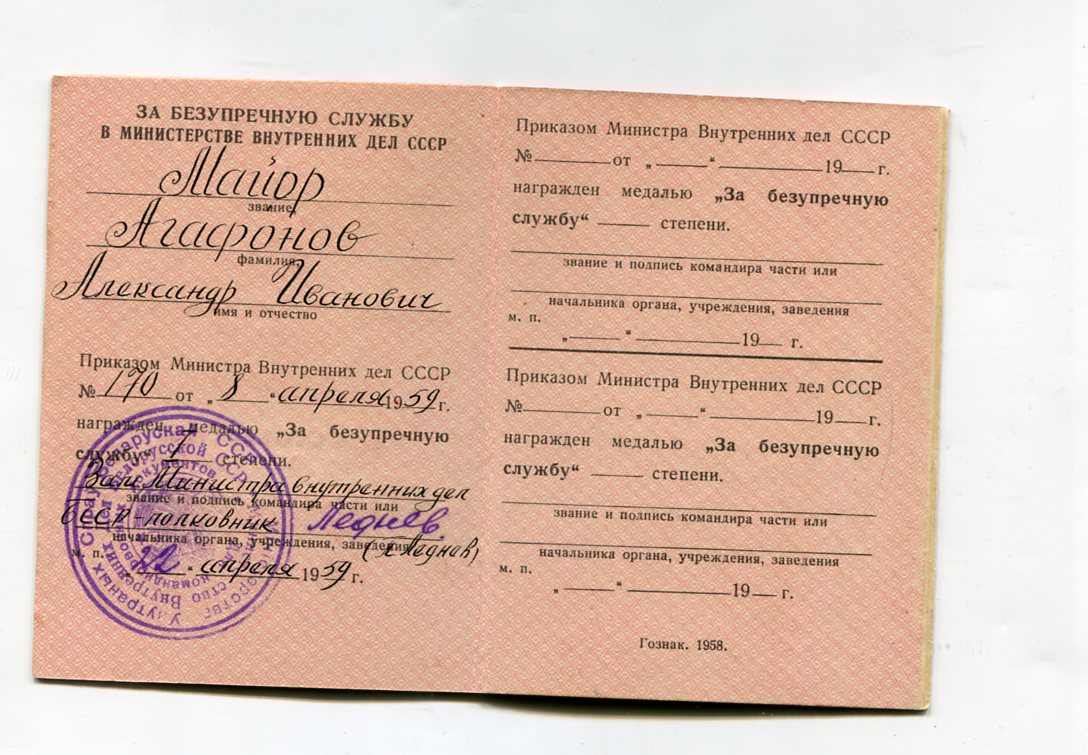 ЗА БЕЗУПРЕЧНУЮ СЛУЖБУ
В МИНИСТЕРСТВЕ ВНУТРЕННИХ ДЕЛ СССР
Майор
звание
Агафонов
фамилия
Александр Иванович
имя и отчество
Приказом Министра Внутренних дел СССР
№ 170 от „ 8 “ апреля 1959 г.
награжден медалью „За безупречную
службу“ I степени.
Зам. Министра внутренних дел
звание и подпись командира части или
БССР полковник
начальника органа, учреждения, заведения
м. п.
„ 22 “ апреля 1959 г.
Приказом Министра Внутренних дел СССР
№ от „ “ 19 г.
награжден медалью „За безупречную
службу“ степени.
звание и подпись командира части или
начальника органа, учреждения, заведения
м. п.
„ “ 19 г.
Приказом Министра Внутренних дел СССР
№ от „ “ 19 г.
награжден медалью „За безупречную
службу“ степени.
звание и подпись командира части или
начальника органа, учреждения, заведения
м. п.
„ “ 19 г.
Гознак. 1958.